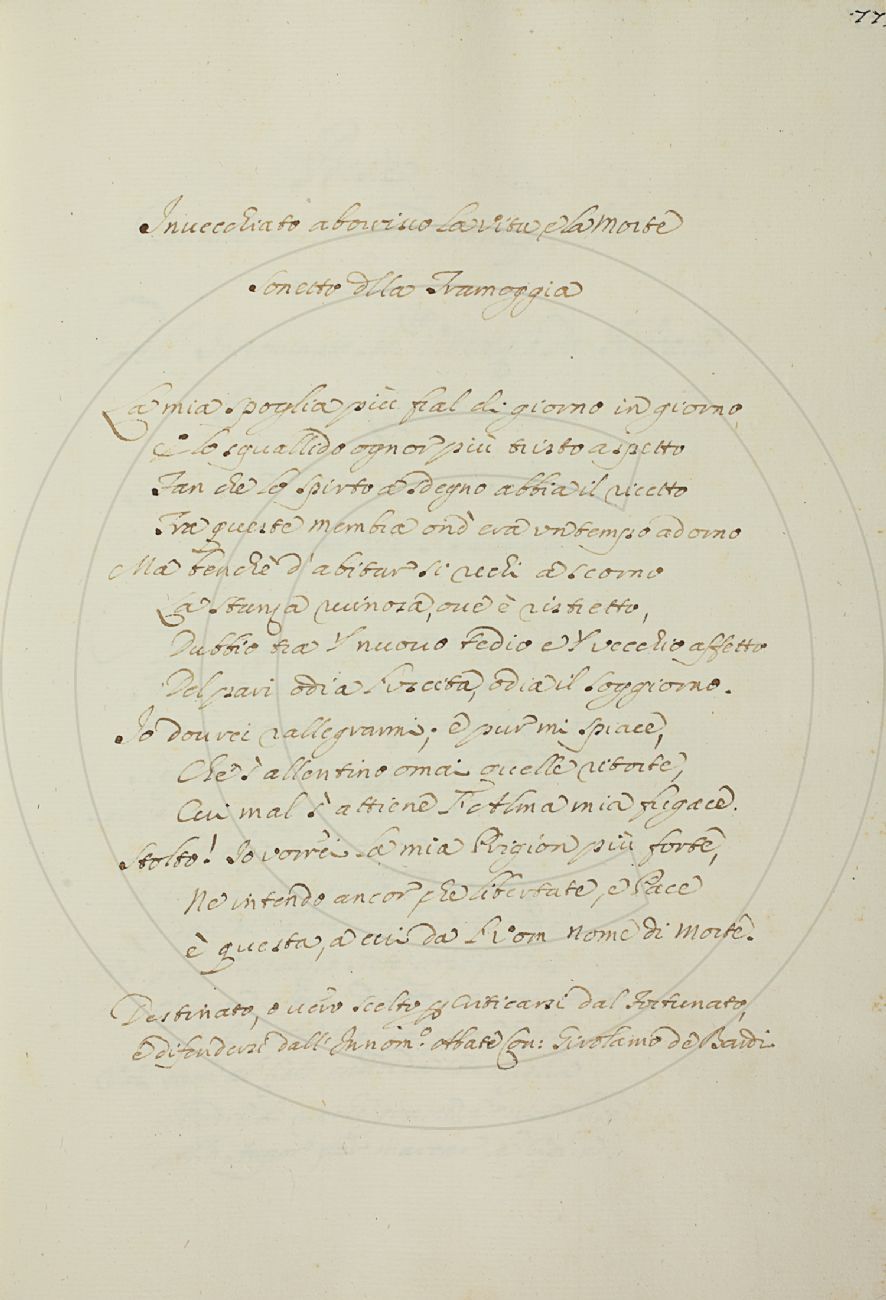 77
Invecchiato aborrisco la vita e la Morte
Sonetto dlla Tramoggia
La mia spoglia più fral di giorno in giorno,
E lo squallido ognor più tristo aspetto
Fan che lo spirto a sdegno abbia il ricetto
Tra queste membra ond' era un tempo adorno
Ma benchè d'abitar si rechi a scorno
La stanza ruinosa, ov' è ristretto,
Dubbio tra 'l nuovo tedio e 'l vecchio affetto
Del pari odia l'uscita, odia il soggiorno.
Io dovrei rallegrarmi; e pur mi spiace,
Che s'allentino omai quelle ritorte,
Cui mal s'attiene l'Alma mia fugace.
Stolto! Io vorrei la mia Prigion più forte,
Ne intendo ancor che libertate, e Pace
è questa, a cui da l'Uom nome di Morte.
Destinato, o vero scelto p criticarsi dal Fortunato,
e difendersi dall' Innom.o Abate Con: Girolamo de Bardi